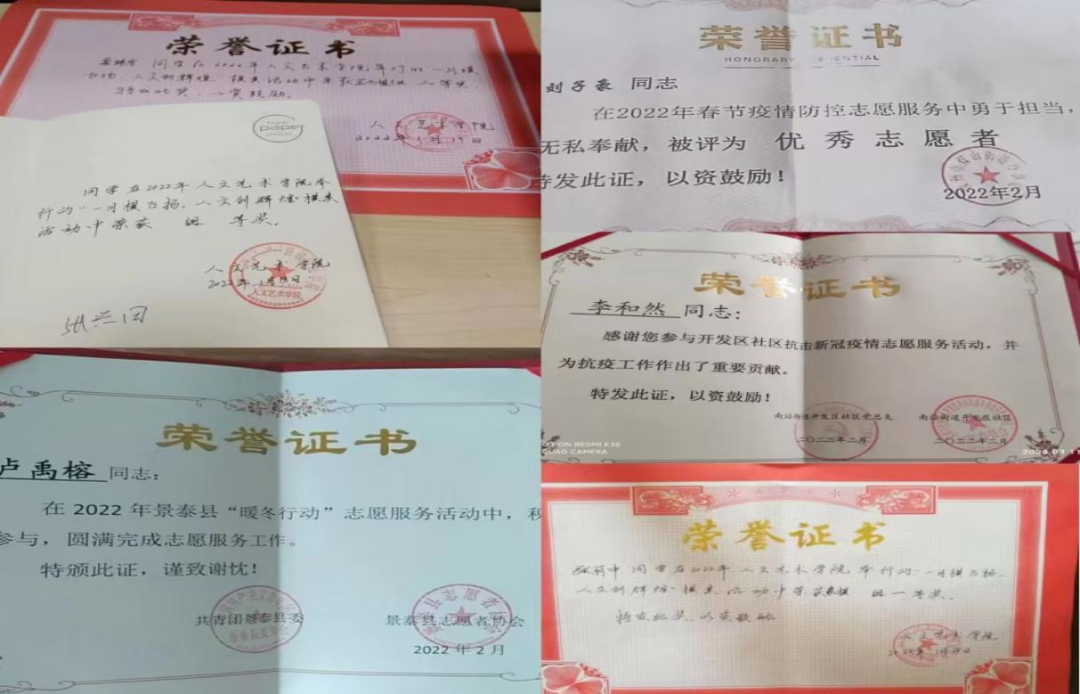 荣誉证书
同学在2022年人文艺术学院举行的"一月模飞扬,
人文创辉煌"模头活动中荣获 组 一等奖,
特发此奖,以资鼓励。
人文艺术学院
2022年1月19日
同学在2022年人文艺术学院举
行的"一月模飞扬,人文创辉煌"模头
活动中荣获 组 等奖。
人文艺术学院
2022年1月19日
人文艺术学院
荣誉证书
HONORARY
刘子豪 同志
在2022年春节疫情防控志愿服务中勇于担当,
无私奉献,被评为 优秀志愿者
特发此证,以资鼓励!
2022年2月
荣誉证书
李和然 同志:
感谢您参与开发区社区抗击新冠疫情志愿服务活动,并
为抗疫工作作出了重要贡献。
特发此证,以资鼓励!
南站街道开发区社区党总支 南站街道开发区社区
二〇二二年二月 二〇二二年二月
SHOT ON REDMI K30
QUAD CAMERA
荣誉证书
卢禹榕 同志:
在 2022 年景泰县“暖冬行动”志愿服务活动中,积
参与,圆满完成志愿服务工作。
特颁此证,谨致谢忱!
共青团景泰县委 景泰县志愿者协会
2022 年 2 月
荣誉证书
同学在2022年 人文艺术学院 举行的"一月模飞扬,
人文创辉煌"模头活动中荣获 组一等奖。
特发此奖,以资鼓励。
人文艺术学院